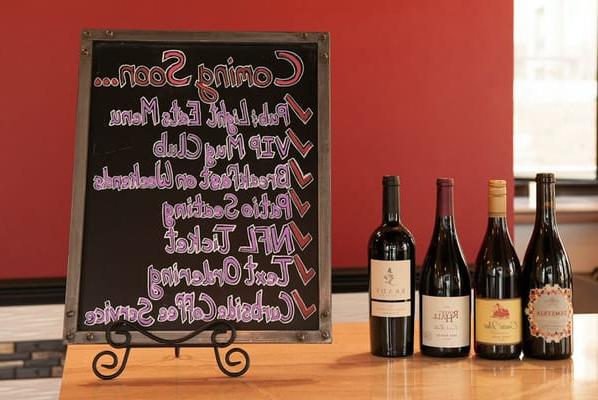 Coming Soon...
Pub/Light Eats Menu
VIP Mug Club
BreakFast on Weekends
Patio Seating
NFL Ticket
Text Ordering
Curbside Coffee Service